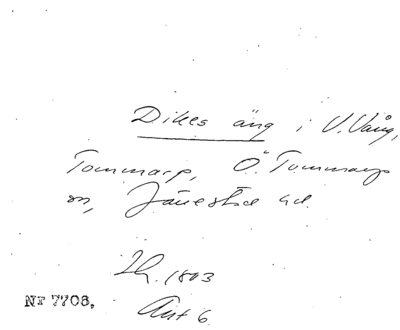 Dikes äng i V. Vång,
Tommarp, Ö. Tommarps
sn, Järrestad hd.
Lh. 1803
Akt 6
Nr 7708.